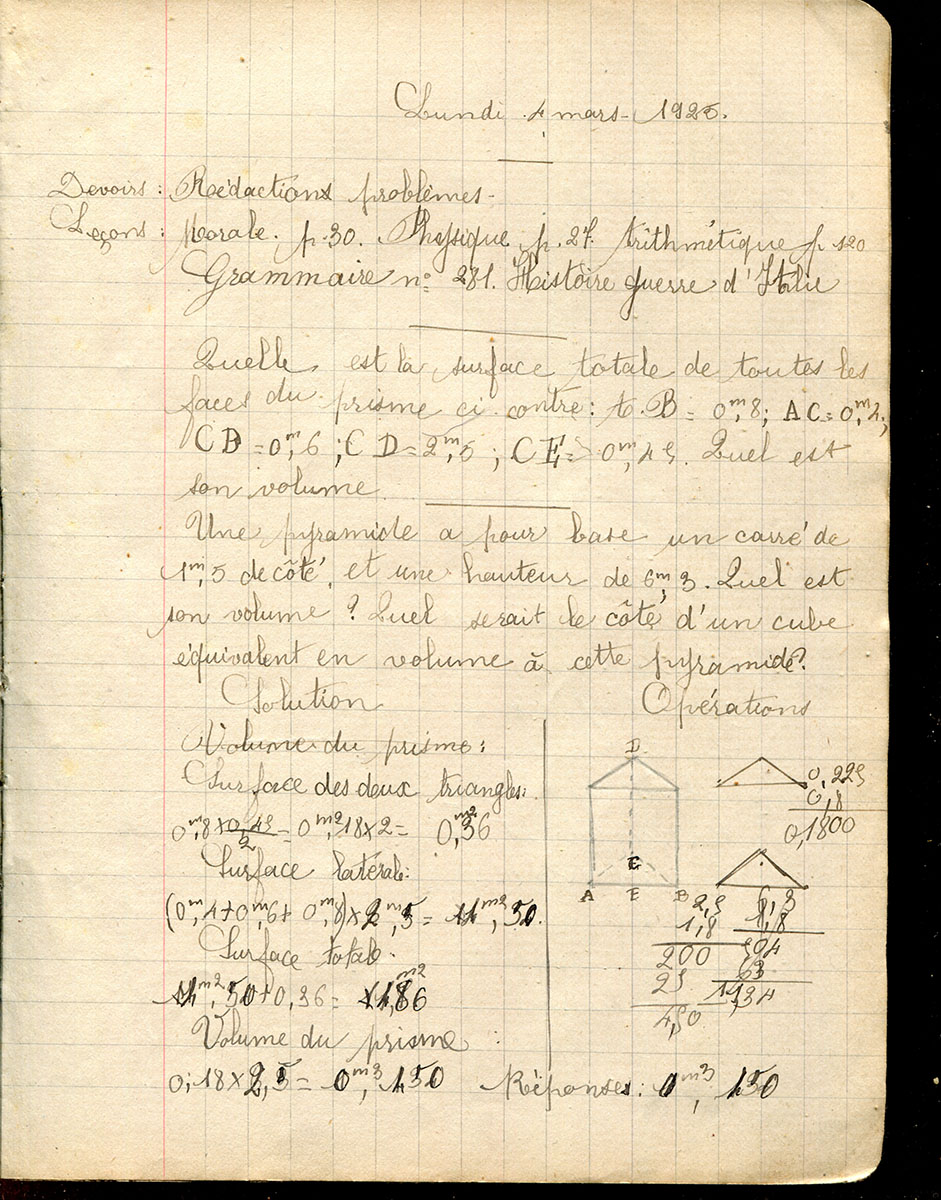 Lundi 4 mars - 1925.
Devoirs : Rédactions problèmes -
Leçons : Morale. p. 30. Physique p. 27. Arithmétique p 120
Grammaire n° 281. Histoire guerre d'Italie
Quelle est la surface totale de toutes les
faces du prisme ci contre : A. B = 0m,8; AC = 0m,4;
CB = 0m,6 ; CD = 2m,5 ; CE = 0m,45. Quel est
son volume
Une pyramide a pour base un carré de
1m,5 de côté, et une hauteur de 6m,3. Quel est
son volume ? Quel serait le côté d'un cube
équivalent en volume à cette pyramide ?
Solution Opérations
Volume du prisme :
Surface des deux triangles :
0m,8 × 0,45/2 = 0m2,18 × 2 = 0m2,36
Surface latérale :
(0m,4 + 0m,6 + 0m,8) × 2m,5 =
Surface totale.
Volume du prisme :
0,18 × 2,5 = 0m3, 450 Réponses : 0m3, 450
D
C
A E B
0,225
0,8
0,1800
2,5
1,8
200
25
4,50
6,3
1,8
504
63
11,34